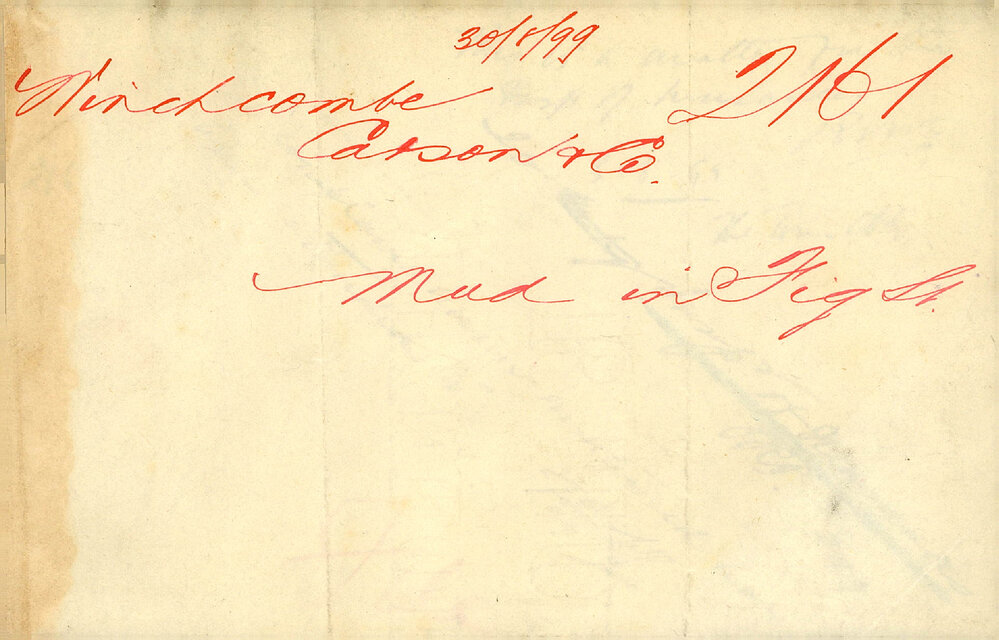 30/1/99
Winchcombe 2161
Carson & Co.
Mud in Fig St.